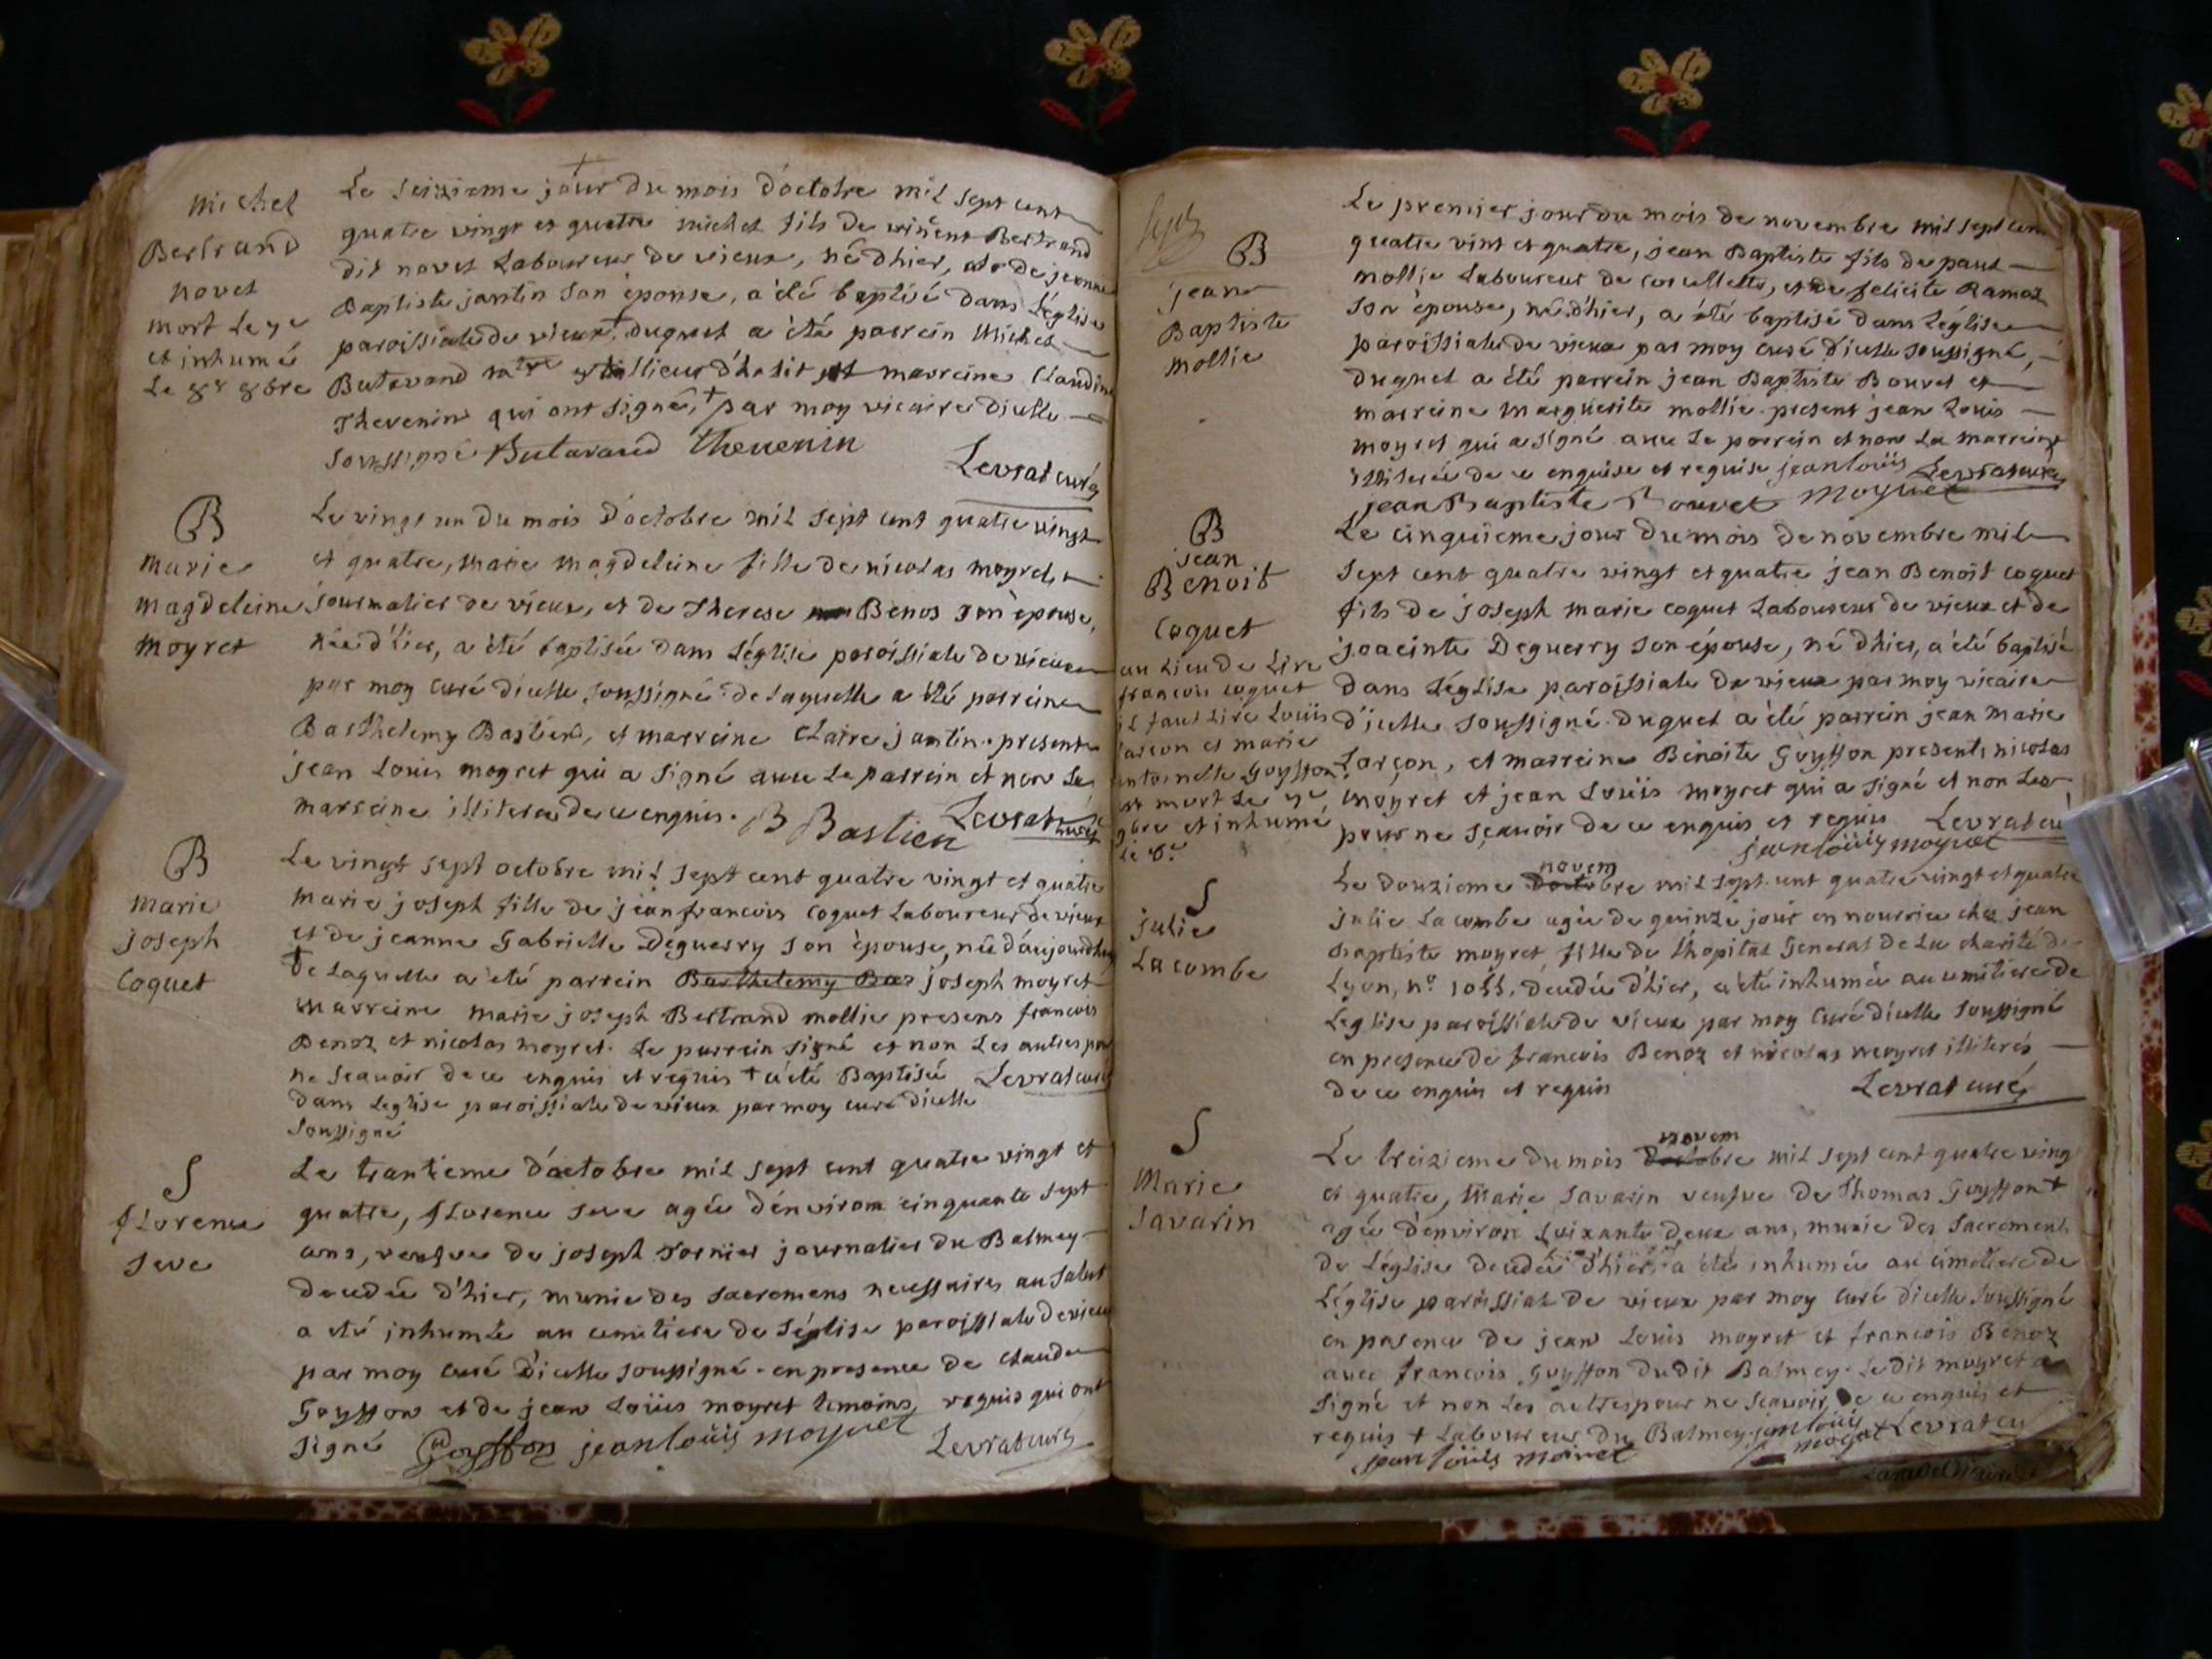 Michel
Bertrand
novet
mort le 7e
et inhumé
le 8e 8bre
Le seizieme jour du mois d'octobre mil sept cent
quatre vingt et quatre michel fils de vincent Bertrand
dit novet Laboureur de vieux, né d'hier, et de jeanne
Baptiste jantin son épouse, a été baptisé dans L'église
paroissiale de vieux + duquel a été parrein Michel
Butavand et marreine Claudine
Thevenin qui ont signé, + par moy vicaire d'icelle
soussigné Butavand Thevenin
Levrat curé
B
Marie
Magdeleine
Moyret
Le vingt un du mois d'octobre mil sept cent quatre vingt
et quatre, marie magdeleine fille de nicolas moyret
journalier de vieux, et de Therese Benos son épouse,
née d'hier, a été baptisée dans L'église paroissiale de vieux
par moy curé d'icelle soussigné. de Laquelle a été parrein
Barthelemy Bastien, et marreine Claire jantin. present
jean Louis moyret qui a signé avec Le parrein et non La
marreine illiteree de ce enquis. B Bastien Levrat curé
B
Marie
joseph
Coquet
Le vingt sept octobre mil sept cent quatre vingt et quatre
Marie joseph fille de jean francois Coquet Laboureur de vieux
et de jeanne Gabrielle Deguerry son épouse, née d'aujourdhuy
+ de Laquelle a été parrein Barthelemy Bas joseph moyret
marreine marie joseph Bertrand mollie presens francois
Benoz et nicolas moyret. Le parrein signé et non Les autres pour
ne scavoir de ce enquis et requis + a été Baptisée Levrat curé
dans Leglise paroissiale de vieux par moy curé d'icelle
soussigné
S
florence
Seve
Le trantieme d'octobre mil sept cent quatre vingt et
quatre, florence seve agée d'environ cinquante sept
ans, veufve de joseph Tornier journalier du Balmey
decedée d'hier, munie des sacremens necessaires au salut
a été inhumée au cemitiere de L'église paroissiale de vieux
par moy curé d'icelle soussigné. en presence de Claude
Goyffon et de jean Loüis moyret temoins requis qui ont
signé Goyffon jean loüis moyret Levrat curé
B
jean
Baptiste
mollie
Le premier jour du mois de novembre mil sept cent
quatre vint et quatre, jean Baptiste fils de paul
mollie Laboureur de Corcellette, et de felicite Ramoz
son épouse, né d'hier, a été baptisé dans L'église
paroissiale de vieux par moy curé d'icelle soussigné,
duquel a été parrein jean Baptiste Bouvet et
marreine marguerite mollie. present jean Louis
moyret qui a signé avec Le parrein et non La marreine
illiterée de ce enquise et requise jean loüis Levrat curé
jean Baptiste Bouvet moyret
B
jean
Benoit
Coquet
au Lieu de Lire
francois coquet
il faut Lire Louis
Larçon et marie
antoinette Goyffon
est mort Le 7e
9bre et inhumé
Le 8e
Le cinquieme jour du mois de novembre mil
sept cent quatre vingt et quatre jean Benoit coquet
fils de joseph marie coquet Laboureur de vieux et de
joacinte Deguerry son épouse, né d'hier, a été baptisé
dans L'église paroissiale de vieux par moy vicaire
d'icelle soussigné. duquel a été parrein jean marie
Larçon, et marreine Benoite Goyffon presents nicolas
moyret et jean Loüis moyret qui a signé et non Les
pour ne scavoir de ce enquis et requis Levrat cu
jean loüis moyret
S
julie
La combe
novem
Le douzieme d'octobre mil sept cent quatre vingt et quatre
julie La combe agée de quinze jour en nourrice chez jean
baptiste moyret, fille de L'hopital General de La charité de
Lyon, n° 1055. decedée d'hier, a été inhumée au cemitiere de
Leglise paroissiale de vieux par moy Curé d'icelle soussigné
en presence de francois Benoz et nicolas moyret illiterés
de ce enquis et requis Levrat curé
S
Marie
Savarin
novem
Le treizieme du mois d'octobre mil sept cent quatre ving
et quatre, Marie Savarin veufve de Thomas Goyffon +
agée d'environ soixante deux ans, munie des sacrements
de L'église decedée d'hier, a été inhumée au cimetiere de
L'église paroissiale de vieux par moy curé d'icelle soussigné
en presence de jean Louis moyret et francois Benoz
avec francois Goyffon dudit Balmey. Le dit moyret a
signé et non Les autres pour ne scavoir de ce enquis et
requis + Laboureur du Balmey. jean loüis moyret Levrat cu
jean loüis moiret